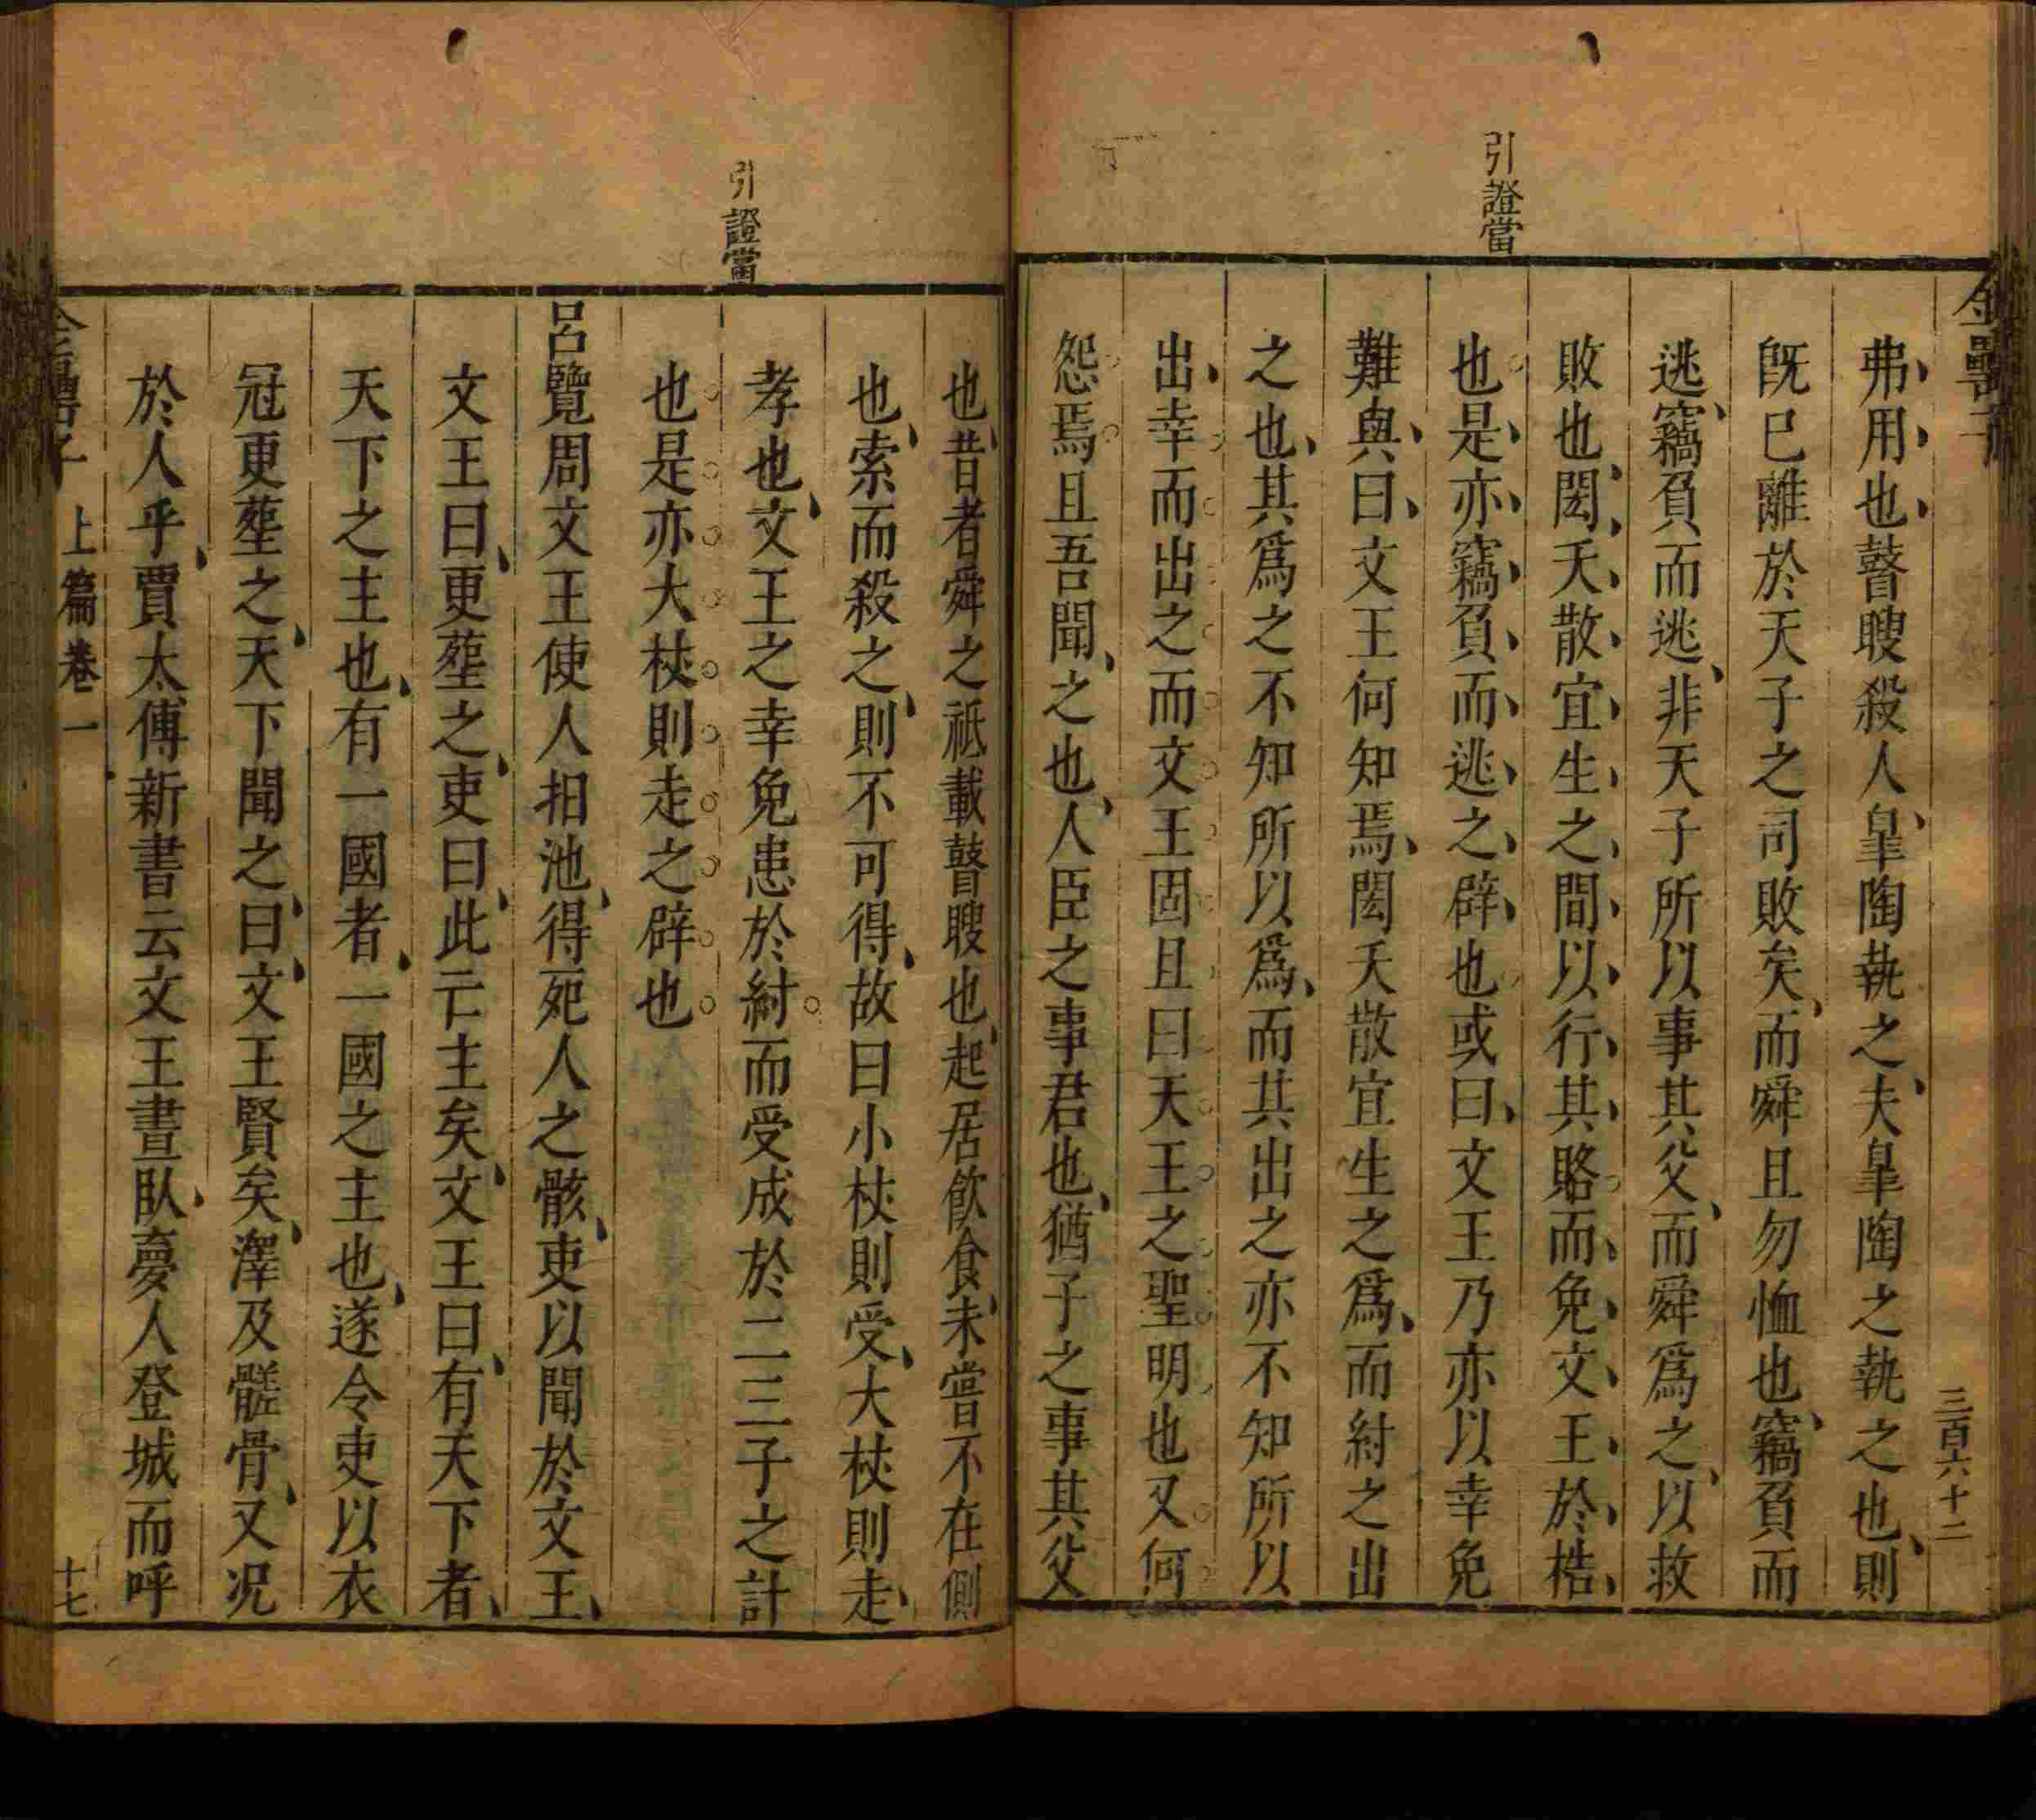 引證當
三百六十二
弗用也瞽瞍殺人皐陶執之夫皐陶之執之也則
旣已離於天子之司敗矣而舜且勿恤也竊負而
逃竊負而逃非天子所以事其父而舜爲之以救
敗也閎夭散宜生之間以行其賂而免文王於梏
也是亦竊負而逃之辟也或曰文王乃亦以幸免
難與曰文王何知焉閎夭散宜生之爲而紂之出
之也其爲之不知所以爲而其出之亦不知所以
出幸而出之而文王固且曰天王之聖明也又何
怨焉且吾聞之也人臣之事君也猶子之事其父
引證當
也昔者舜之祗載瞽瞍也起居飲食未嘗不在側
也索而殺之則不可得故曰小杖則受大杖則走
孝也文王之幸免患於紂而受成於二三子之計
也是亦大杖則走之辟也
呂覽周文王使人抇池得死人之骸吏以聞於文王
文王曰更葬之吏曰此亡主矣文王曰有天下者
天下之主也有一國者一國之主也遂令吏以衣
冠更葬之天下聞之曰文王賢矣澤及髊骨又况
於人乎賈太傅新書云文王晝臥夢人登城而呼
上篇卷一
十七